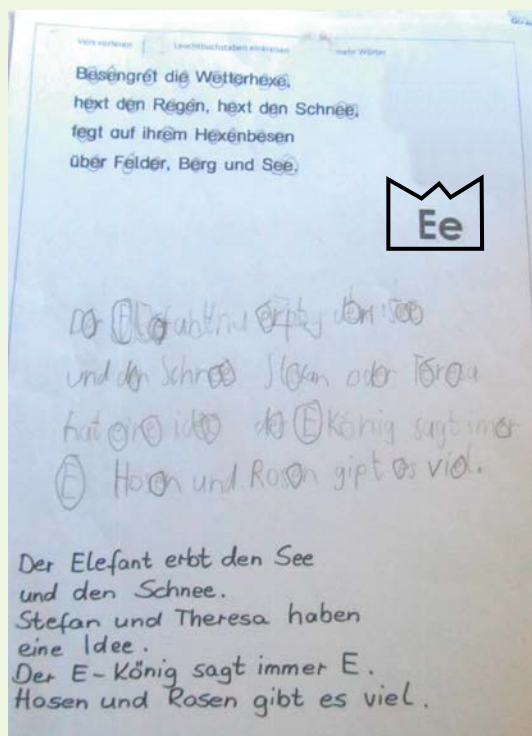 Vers vorlesen | Leuchtbuchstaben einkreisen mehr Wörter
Besengret die Wetterhexe,
hext den Regen, hext den Schnee,
fegt auf ihrem Hexenbesen
über Felder, Berg und See.
Ee
Der Elefant den See
und den Schnee oder
hat eine idee der E König sagt imer
E Hosen und Rosen gipt es viel.
Der Elefant erbt den See
und den Schnee.
Stefan und Theresa haben
eine Idee.
Der E-König sagt immer E.
Hosen und Rosen gibt es viel.